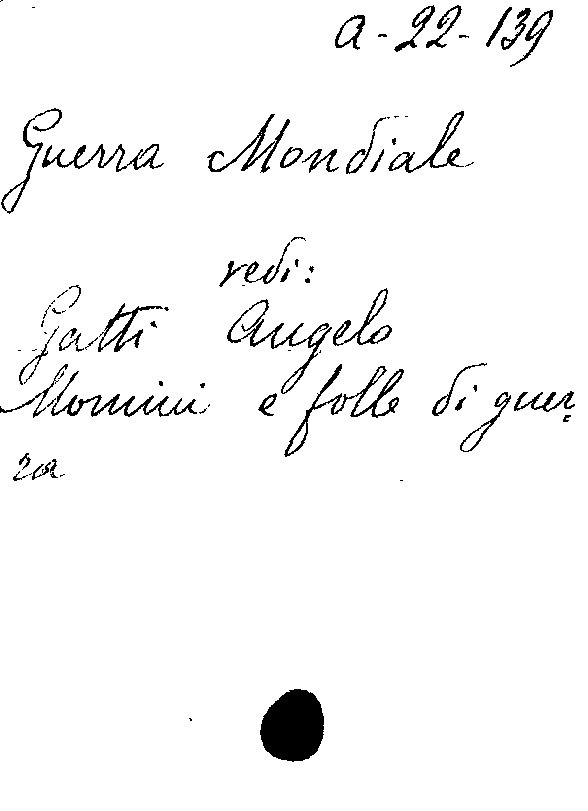 a-22-139
Guerra Mondiale
vedi:
Gatti Angelo
Uomini e folle di guer=
ra